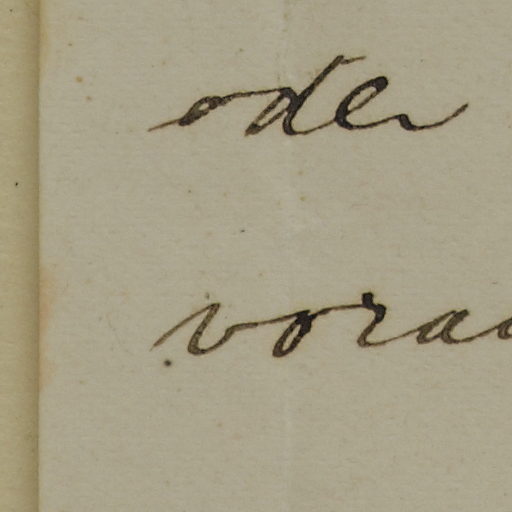 oder
vora